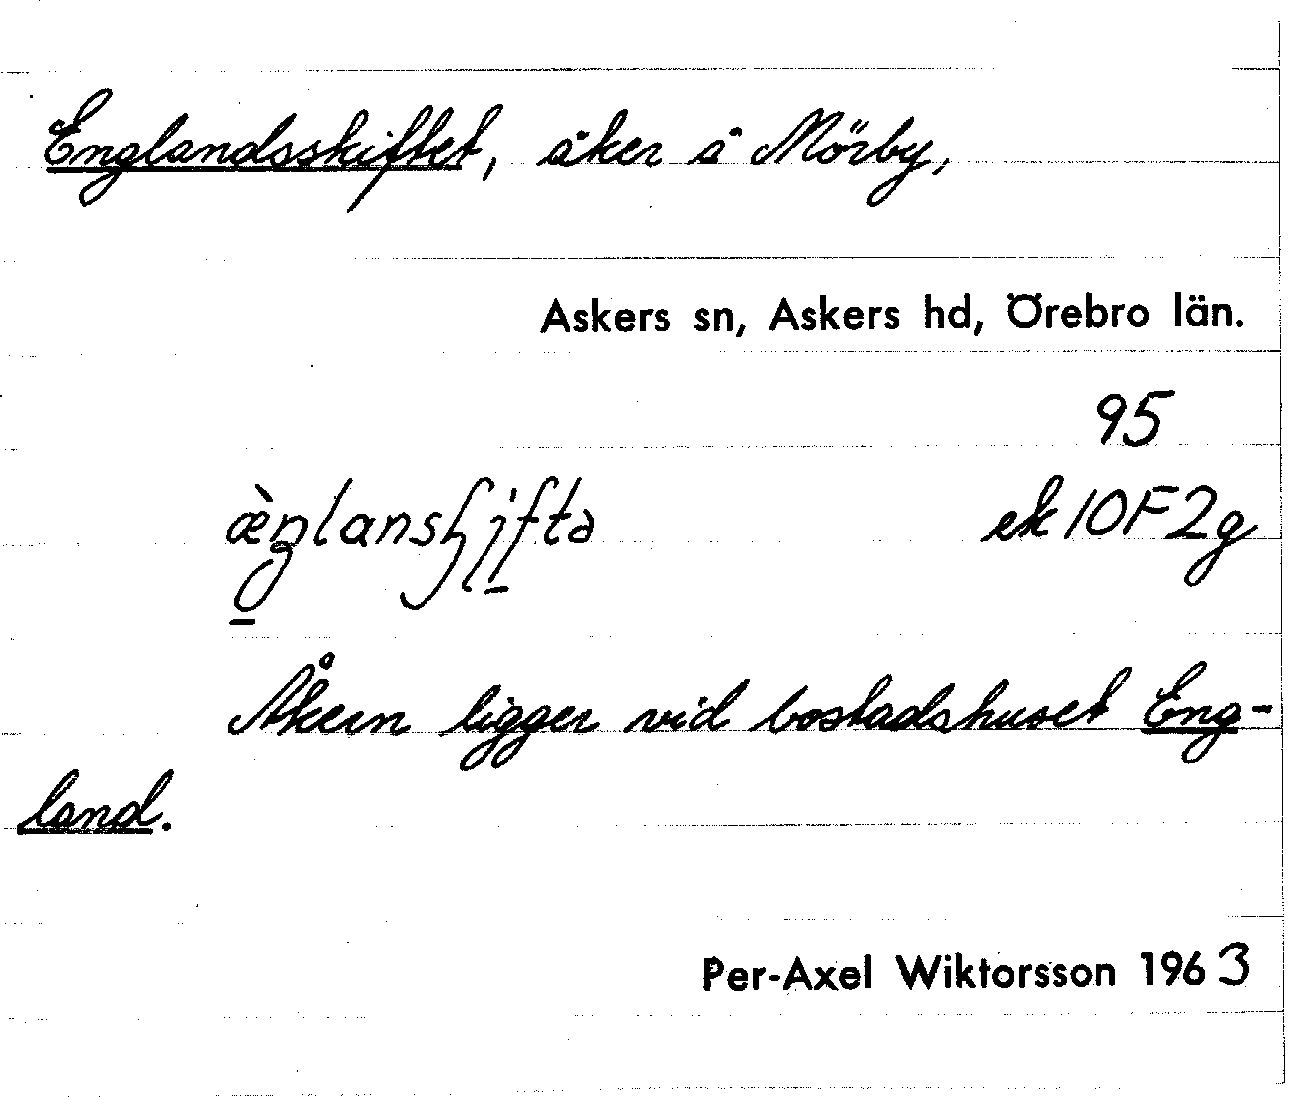 Englandsskiftet, åker å Mörby,
Askers sn, Askers hd, Örebro län.
95
ek 10F2g
Åkern ligger vid bostadshuset Eng-
land.
Per-Axel Wiktorsson 1963